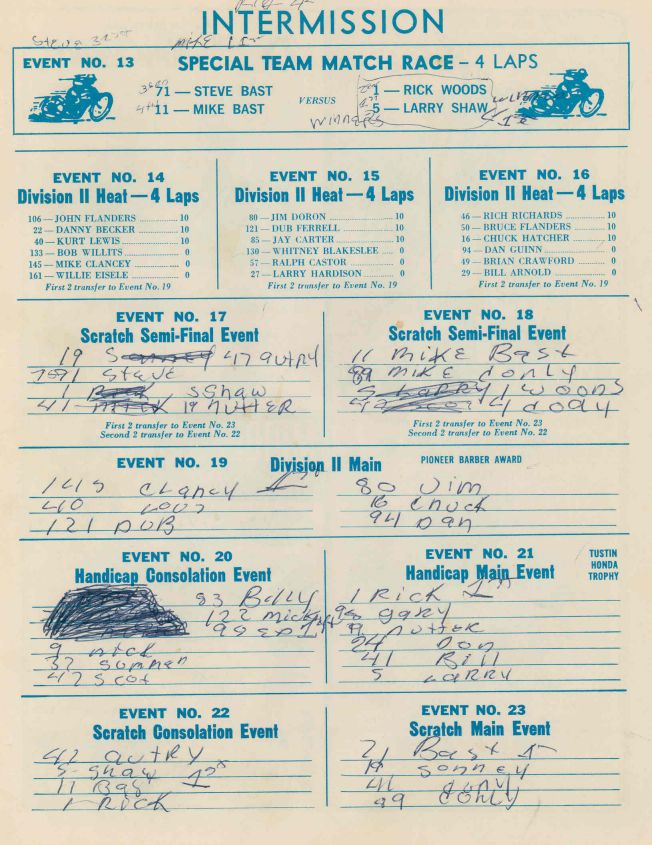 INTERMISSION
STEVE 3RST
MIKE 1ST
EVENT NO. 13 SPECIAL TEAM MATCH RACE – 4 LAPS
71 — STEVE BAST
11 — MIKE BAST
VERSUS
1 — RICK WOODS
5 — LARRY SHAW
WINNERS
EVENT NO. 14
Division II Heat — 4 Laps
106 — JOHN FLANDERS 10
22 — DANNY BECKER 10
40 — KURT LEWIS 10
133 — BOB WILLITS 0
145 — MIKE CLANCEY 0
161 — WILLIE EISELE 0
First 2 transfer to Event No. 19
EVENT NO. 15
Division II Heat — 4 Laps
80 — JIM DORON 10
121 — DUB FERRELL 10
85 — JAY CARTER 10
130 — WHITNEY BLAKESLEE 0
57 — RALPH CASTOR 0
27 — LARRY HARDISON 0
First 2 transfer to Event No. 19
EVENT NO. 16
Division II Heat — 4 Laps
46 — RICH RICHARDS 10
50 — BRUCE FLANDERS 10
16 — CHUCK HATCHER 0
94 — DAN GUINN 0
49 — BRIAN CRAWFORD 0
29 — BILL ARNOLD 0
First 2 transfer to Event No. 19
EVENT NO. 17
Scratch Semi-Final Event
19 47 AUTRY
STEVE
1 SSHAW
41 19 NUTTER
First 2 transfer to Event No. 23
Second 2 transfer to Event No. 22
EVENT NO. 18
Scratch Semi-Final Event
11 MIKE BAST
89 MIKE CONLY
5 LARRY 1 WOODS
42 4 CODY
First 2 transfer to Event No. 23
Second 2 transfer to Event No. 22
EVENT NO. 19 Division II Main PIONEER BARBER AWARD
145 CLANCY 1ST
40
121 DUB
80 JIM
16 CHUCK
94 DAN
EVENT NO. 20
Handicap Consolation Event
83 BILLY
122 MICK
98
9 NICK
37 SUMNER
42 SCOT
EVENT NO. 21
Handicap Main Event
TUSTIN
HONDA
TROPHY
1 RICK 1ST
98 GARY
19 NUTTER
24 DON
41 BILL
5 LARRY
EVENT NO. 22
Scratch Consolation Event
42 AUTRY
5 SHAW 1ST
11 BAS
1 RICK
EVENT NO. 23
Scratch Main Event
71 BAST 1
19 SONNEY
41
89 CONLY